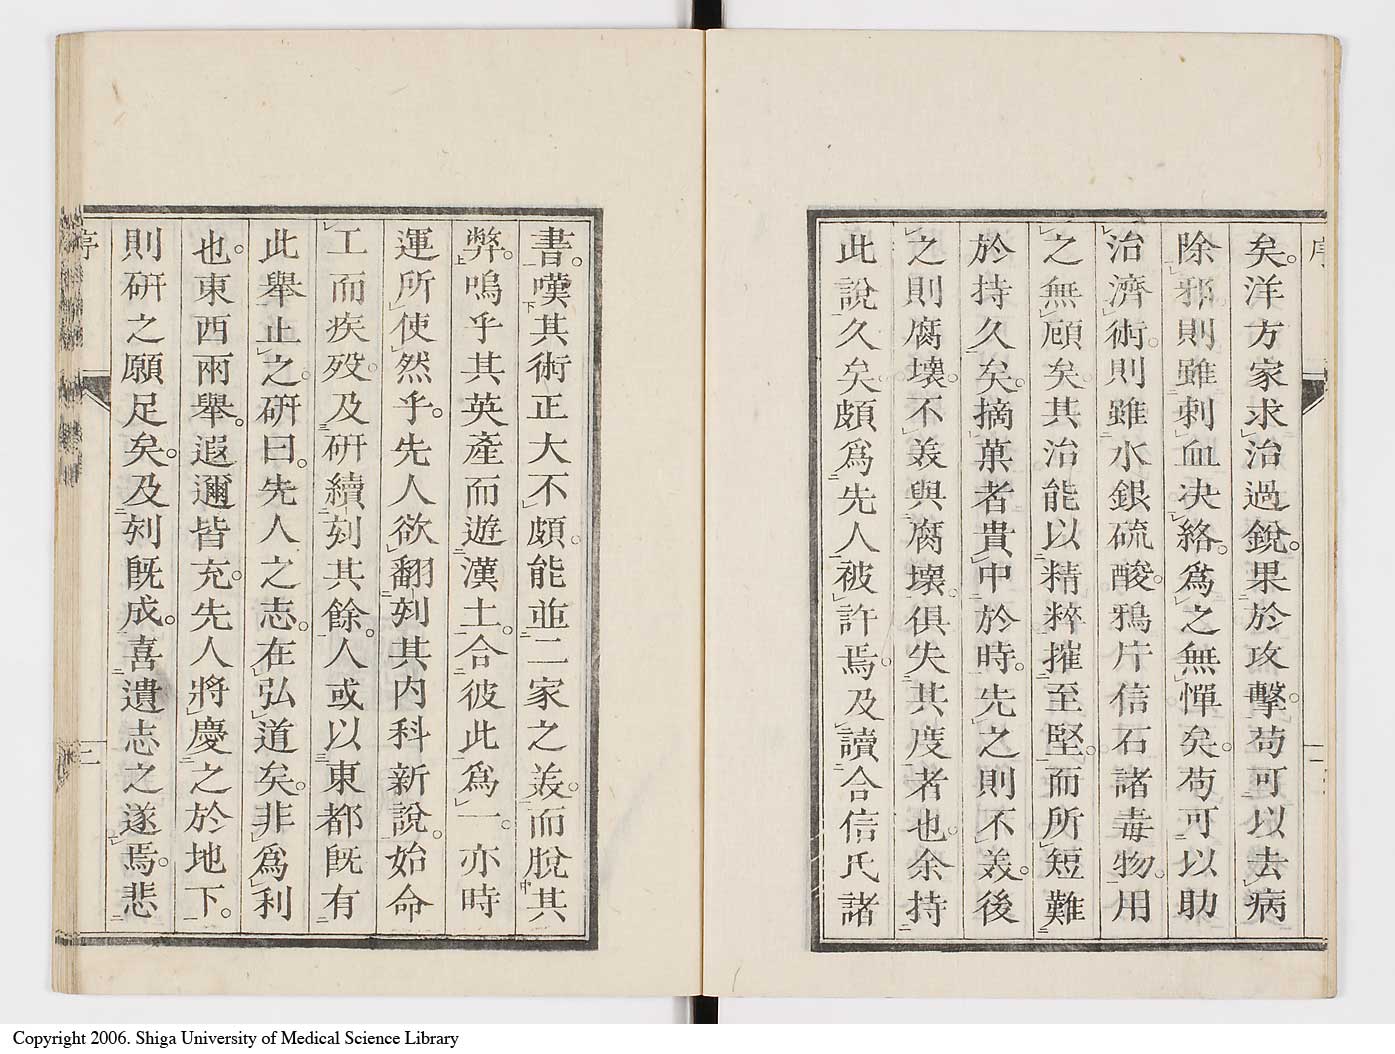 序
矣。洋方家求治過銳。果於攻擊。苟可以去病
除邪則雖刺血決絡。爲之無憚矣。苟可以助
治濟術。則雖水銀硫酸。鴉片信石諸毒物。用
之無顧矣。其治能以精粹摧至堅。而所短難
於持久矣。摘菓者貴中於時。先之則不美。後
之則腐壞。不美與腐壞。俱失其度者也。余持
此說久矣。頗爲先人被許焉。及讀合信氏諸
書。嘆其術正大不頗。能並二家之美。而脫其
弊。嗚乎其英產而遊漢土。合彼此爲一。亦時
運所使然乎。先人欲翻刻其內科新說。始命
工而疾歿。及硏續刻其餘。人或以東都既有
此舉止之。硏曰。先人之志。在弘道矣。非爲利
也。東西兩舉。遐邇皆充。先人將慶之於地下。
則硏之願足矣。及刻既成。喜遺志之遂焉。悲
序
二
Copyright 2006. Shiga University of Medical Science Library